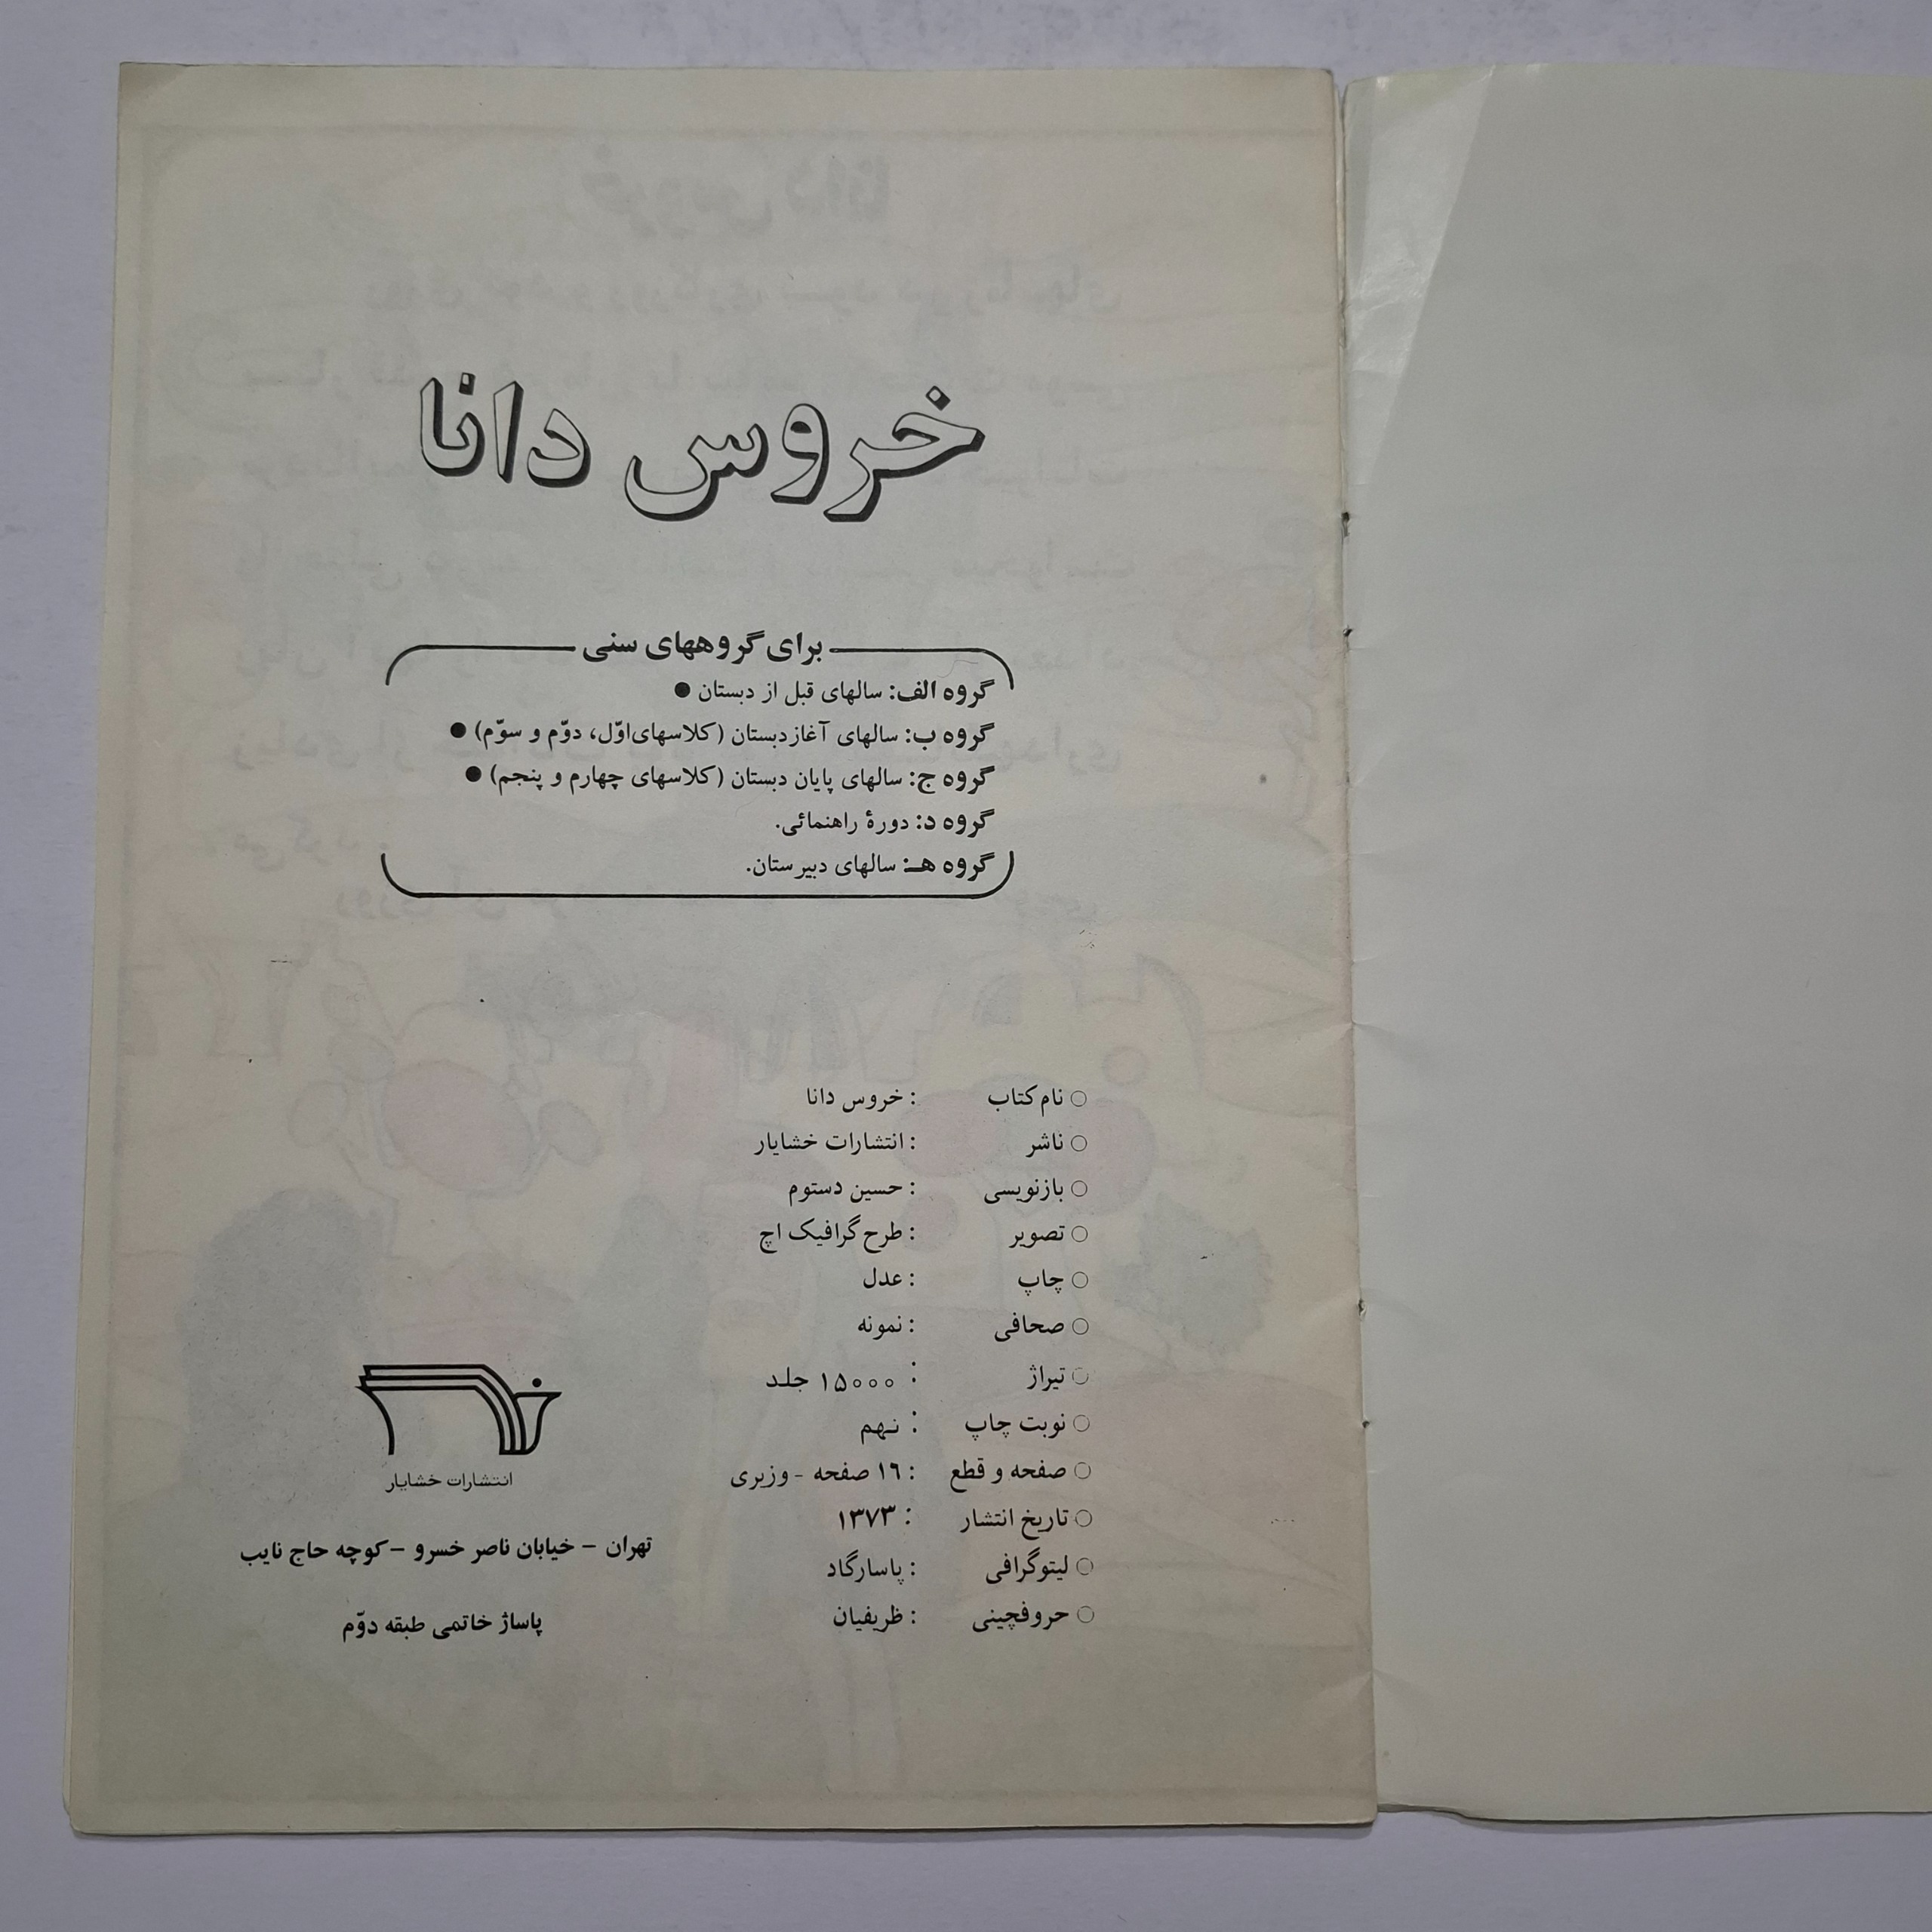 خروس دانا
برای گروههای سنی
گروه الف: سالهای قبل از دبستان ●
گروه ب: سالهای آغاز دبستان (کلاسهای اوّل، دوّم و سوّم) ●
گروه ج: سالهای پایان دبستان (کلاسهای چهارم و پنجم) ●
گروه د: دورهٔ راهنمائی.
گروه هـ: سالهای دبیرستان.
○ نام کتاب : خروس دانا
○ ناشر : انتشارات خشایار
○ بازنویسی : حسین دستوم
○ تصویر : طرح گرافیک اچ
○ چاپ : عدل
○ صحافی : نمونه
○ تیراژ : ۱۵۰۰۰ جلد
○ نوبت چاپ : نهم
○ صفحه و قطع : ۱۶ صفحه - وزیری
○ تاریخ انتشار : ۱۳۷۳
○ لیتوگرافی : پاسارگاد
○ حروفچینی : ظریفیان
انتشارات خشایار
تهران – خیابان ناصر خسرو – کوچه حاج نایب
پاساژ خاتمی طبقه دوّم